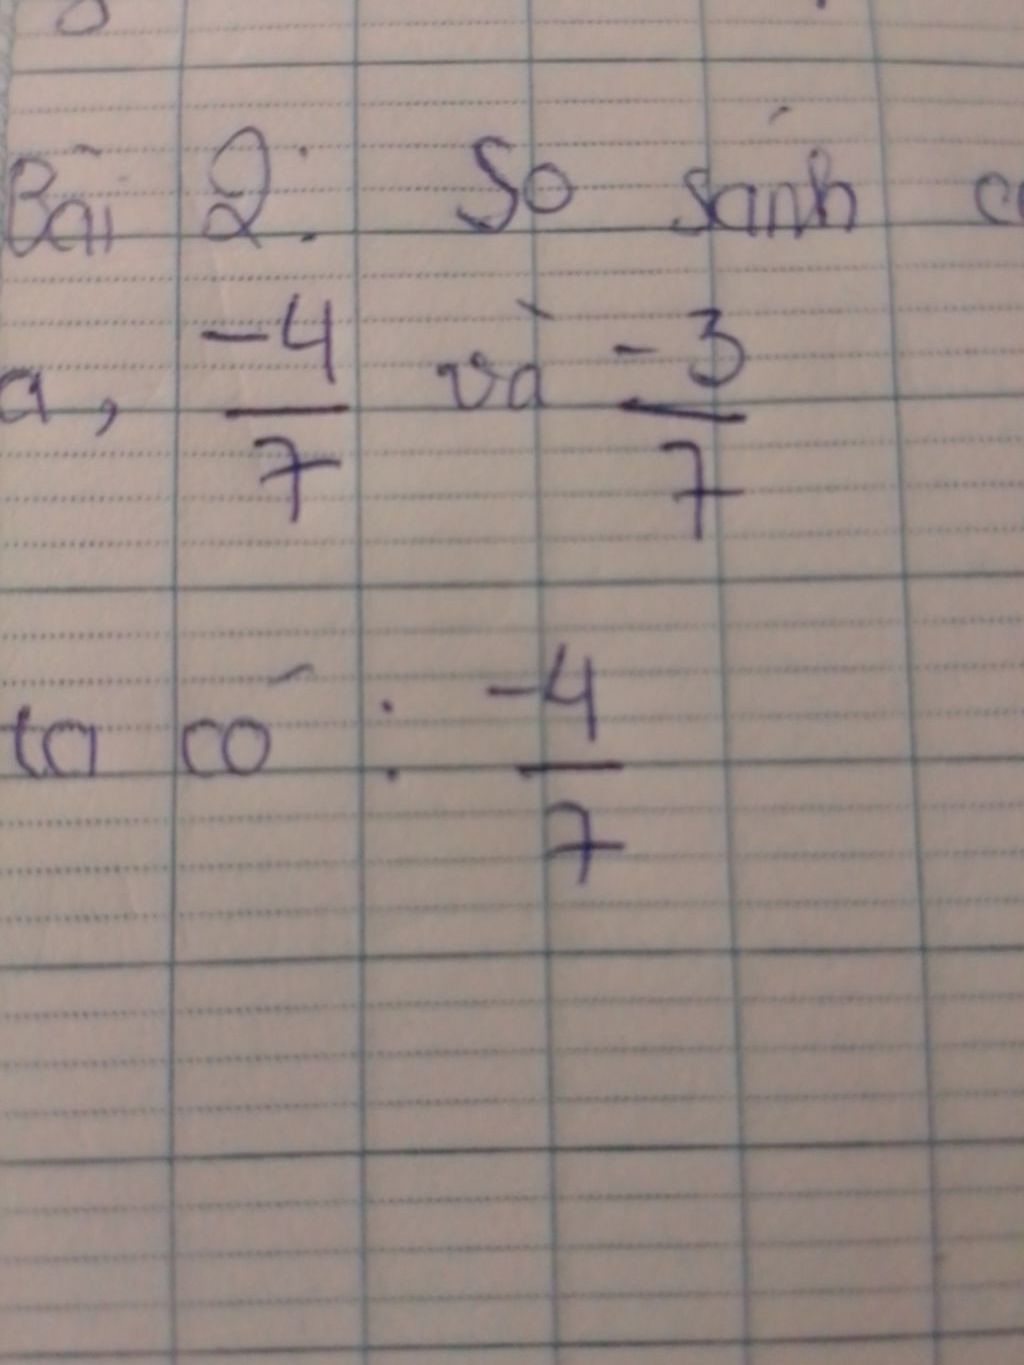 Bài 2: So sánh
a, -4/7 và -3/7
ta có : -4/7